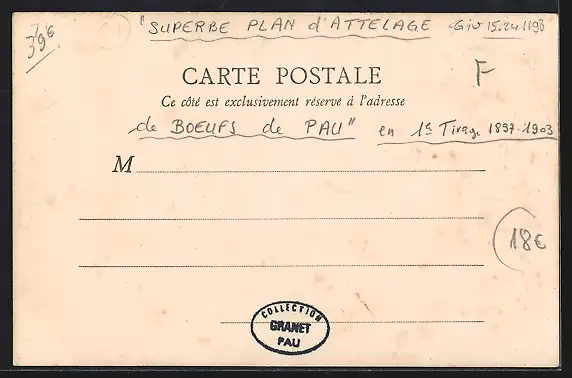 39€
"SUPERBE PLAN d'ATTELAGE
CARTE POSTALE
F
Ce côté est exclusivement réservé à l'adresse
de BOEUFS de PAU" en 1er Tirage 1897-1903
M
18€
COLLECTION
GRANET
PAU